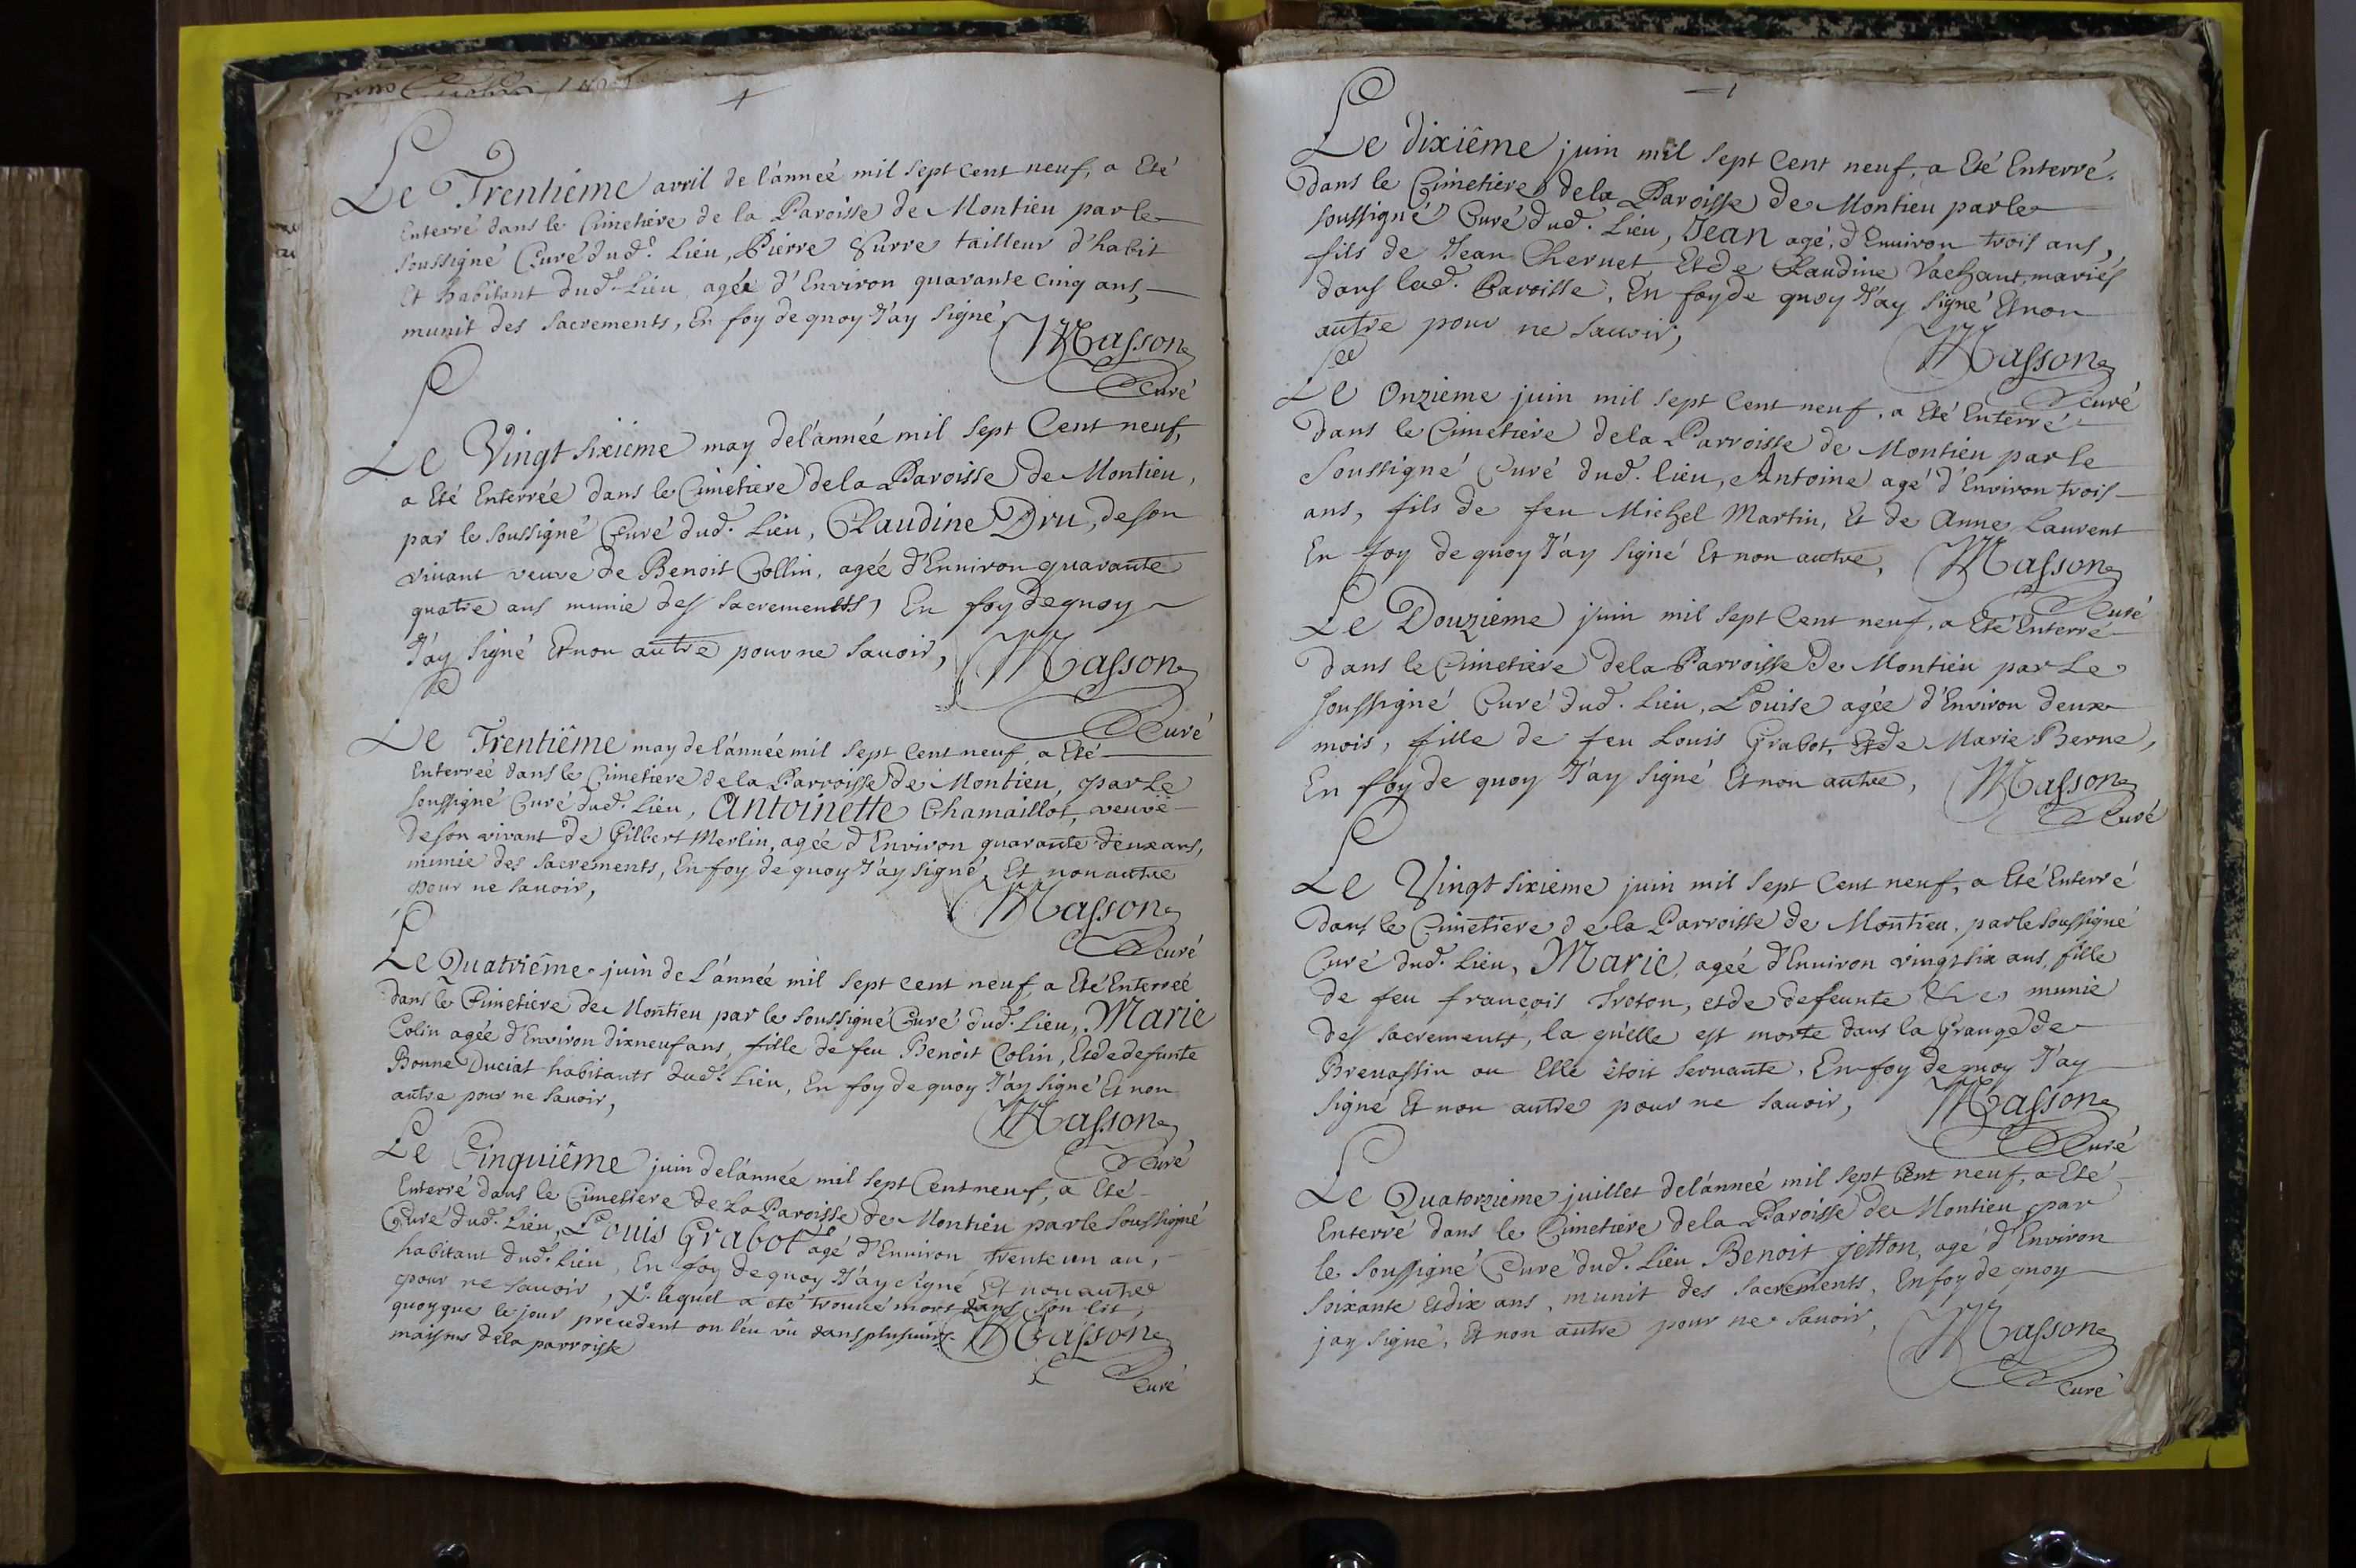 Le Trentiéme avril de l'année mil sept cent neuf, a Eté
Enterré dans le Cimetiere de la Paroisse de Montieu par le
soussigné Curé dud. Lieu, Pierre Surre tailleur d'habit
Et habitant dud. Lieu agée d'Environ quarante cinq ans,
munit des sacrements, En foy de quoy J'ay signé,
Masson
Curé
Le Vingt sixiéme may de l'année mil sept Cent neuf,
a Eté Enterrée dans le Cimetiere de la Paroisse de Montieu,
par le soussigné Curé dud. Lieu, Claudine Dru, de son
vivant veuve de Benoit Collin, agée d'Environ quarante
quatre ans munie des sacrements, En foy de quoy
J'ay signé Et non autre pour ne savoir, Masson
Curé
Le Trentiême may de l'année mil sept Cent neuf, a Eté
Enterrée dans le Cimetiere de la Parroisse de Montieu, par Le
soussigné Curé dud. Lieu, Antoinette Chamaillot, veuve
de son vivant de Gilbert Merlin, agée d'Environ quarante deux ans,
munie des sacrements, En foy de quoy J'ay signé, Et non autre
pour ne savoir,
Masson
Curé
Le Quatriême juin de L'année mil sept cent neuf, a Eté Enterreé
dans le Cimetiere de Montieu par le soussigné Curé dud. Lieu, Marie
Colin agée d'Environ dixneuf ans, fille de feu Benoit Colin, Et de defunte
Bonne Duciat habitants dud. Lieu, En foy de quoy J'ay signé Et non
autre pour ne savoir,
Masson
Curé
Le Cinquiême juin de l'année mil sept Cent neuf, a Eté
Enterré dans le Cimetiere de La Paroisse de Montieu par le soussigné
Curé dud. Lieu, Louis Grabot agé d'Environ trente un an,
habitant dud. Lieu, En foy de quoy J'ay signé Et non autre
pour ne savoir, X lequel a eté trouvé mort dans son lit,
quoyque le jour precedent on l'eu vû dans plusieurs Masson
maisons de la parroisse
Curé
Le dixiême juin mil sept Cent neuf, a Eté Enterré
dans le Cimetiere de la Paroisse de Montieu par le
soussigné Curé dud. Lieu, Jean agé, d'Environ trois ans,
fils de Jean Chernet Et de Claudine Vachant, mariés
dans lad. Paroisse, En foy de quoy J'ay signé Et non
autre pour ne savoir,
Masson
Curé
Le Onzieme juin mil sept Cent neuf, a Eté Enterré
dans le Cimetiere de la Parroisse de Montieu par le
Soussigné Curé dud. lieu, Antoine agé d'Environ trois
ans, fils de feu Michel Martin, Et de Anne Laurent
En foy de quoy J'ay signé Et non autre, Masson
Curé
Le Douzieme juin mil sept Cent neuf, a Eté Enterré
dans le Cimetiere de la Parroisse de Montieu par Le
soussigné Curé dud. Lieu, Louise agée d'Environ deux
mois, fille de feu Louis Grabot, Et de Marie Berne,
En foy de quoy J'ay signé Et non autre, Masson
Curé
Le Vingt sixieme juin mil sept Cent neuf, a Eté Enterré
dans le Cimetiere de la Parroisse de Montieu, par le soussigné
Curé dud. Lieu, Marie, ageé d'Environ vingt six ans, fille
de feu françois Troton, et de defeunte munie
des sacrements, la quelle est morte dans la Grange de
Brevassin ou Elle étoit servante, En foy de quoy J'ay
signé Et non autre pour ne savoir, Masson
Curé
Le Quatorzieme juillet de l'anneé mil sept Cent neuf, a Eté
Enterré dans le Cimetiere de la Paroisse de Montieu par
le soussigné Curé dud. Lieu Benoit jetton, agé d'Environ
soixante Et dix ans, munit des sacrements, En foy de quoy
jay signé, Et non autre pour ne savoir,
Masson
Curé